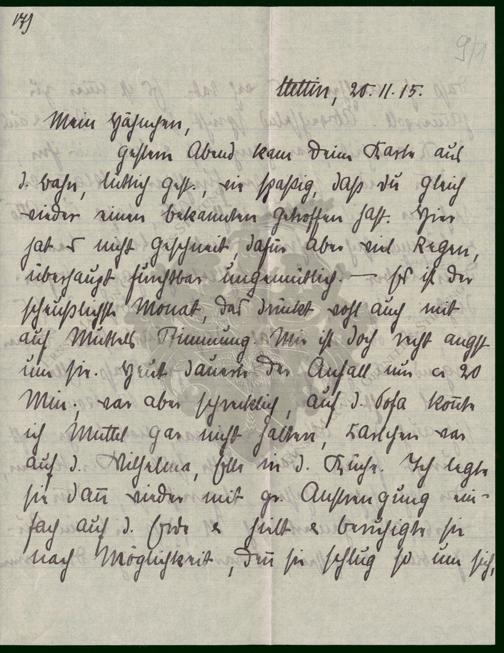 179
9/1
Stettin, 20.11.15.
Mein Hähnchen,
gestern Abend kam deine Karte aus
d. bahn, lüttich gest., wie spaßig, daß du gleich
wieder einen bekannten getroffen hast. Hier
hat's nicht geschneit, dafür aber viel Regen,
überhaupt furchtbar ungemütlich. — Es ist der
scheußlichste Monat, das drückt wohl auch mit
auf Muttels Stimmung. Mir ist doch recht angst
um sie. Heut dauerte der Anfall nur ca 20
Min., war aber schrecklich, auf d. Sofa konnte
ich Muttel gar nicht halten, Karlchen war
auf d. Wilhelma, Elle in d. Küche. Ich legte
sie dann wieder mit gr. Anstrengung ein-
fach auf d. Erde & hielt & beruhigte sie
nach Möglichkeit, denn sie schlug so um sich,